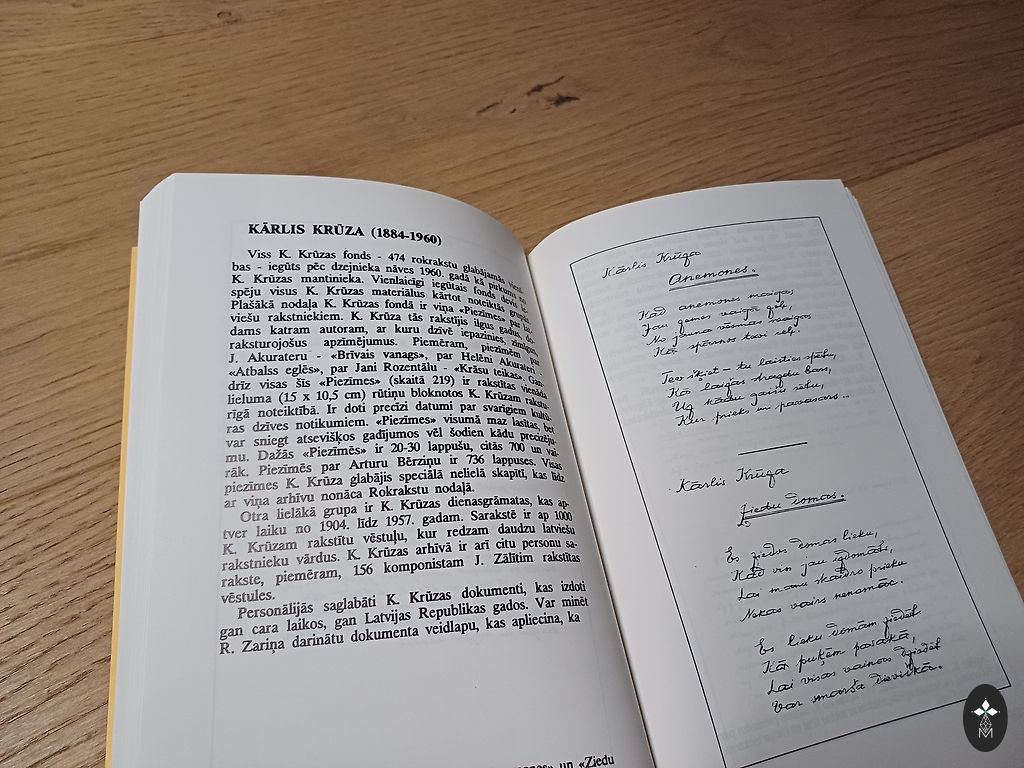 KĀRLIS KRŪZA (1884-1960)
Viss K. Krūzas fonds - 474 rokrakstu glabājamās vienī-
bas - iegūts pēc dzejnieka nāves 1960. gadā kā pirkums no
K. Krūzas mantinieka. Vienlaicīgi iegūtais fonds deva ie-
spēju visus K. Krūzas materiālus kārtot noteiktās grupās.
Plašākā nodaļa K. Krūzas fondā ir viņa «Piezīmes» par lat-
viešu rakstniekiem. K. Krūza tās rakstījis ilgus gadus, do-
dams katram autoram, ar kuru dzīvē iepazinies, zīmīgus,
raksturojošus apzīmējumus. Piemēram, piezīmēm par
J. Akurateru - «Brīvais vanags», par Helēni Akurateri -
«Atbalss eglēs», par Jani Rozentālu - «Krāsu teikas». Gan-
drīz visas šīs «Piezīmes» (skaitā 219) ir rakstītas vienāda
lieluma (15 x 10,5 cm) rūtiņu bloknotos K. Krūzam rakstu-
rīgā noteiktībā. Ir doti precīzi datumi par svarīgiem kultū-
ras dzīves notikumiem. «Piezīmes» visumā maz lasītas, bet
var sniegt atsevišķos gadījumos vēl šodien kādu precizēju-
mu. Dažās «Piezīmēs» ir 20-30 lappušu, citās 700 un vai-
rāk. Piezīmēs par Arturu Bērziņu ir 736 lappuses. Visas
piezīmes K. Krūza glabājis speciālā nelielā skapītī, kas līdz
ar viņa arhīvu nonāca Rokrakstu nodaļā.
Otra lielākā grupa ir K. Krūzas dienasgrāmatas, kas ap-
tver laiku no 1904. līdz 1957. gadam. Sarakstē ir ap 1000
K. Krūzam rakstītu vēstuļu, kur redzam daudzu latviešu
rakstnieku vārdus. K. Krūzas arhīvā ir arī citu personu sa-
rakste, piemēram, 156 komponistam J. Zālītim rakstītas
vēstules.
Personālijās saglabāti K. Krūzas dokumenti, kas izdoti
gan cara laikos, gan Latvijas Republikas gados. Var minēt
R. Zariņa darinātu dokumenta veidlapu, kas apliecina, ka
un «Ziedu
Kārlis Krūza
Anemones.
Kad anemones maigas
Jau
No jauna vēsmas svaigas
Kā spārnos tavi ceļi.
Tev šķiet - tu laisties spētu,
Kā laigas strazdu bars,
Uz kādu gaišu sētu,
Kur prieks un pavasars...
Kārlis Krūza
Ziedu domas.
Es ziedos domas lieku,
Kad viņ jau izdomāti,
Lai manu skaidro prieku
Nekas vairs nenomāc.
Es lieku domām ziedēt
Kā puķēm pasakā,
Lai visas vainas dziedēt
Var smarša dievišķā.
M